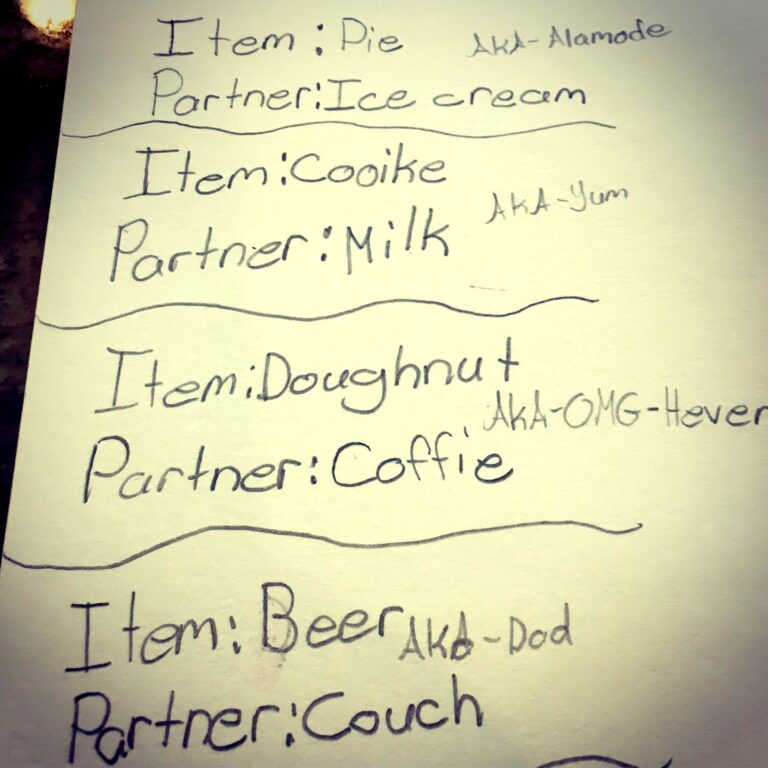 Item: Pie AKA-Alamode
Partner: Ice cream
Item: Cooike
AKA-Yum
Partner: Milk
Item: Doughnut
AKA-OMG-Heven
Partner: Coffie
Item: Beer AKA-Dad
Partner: Couch